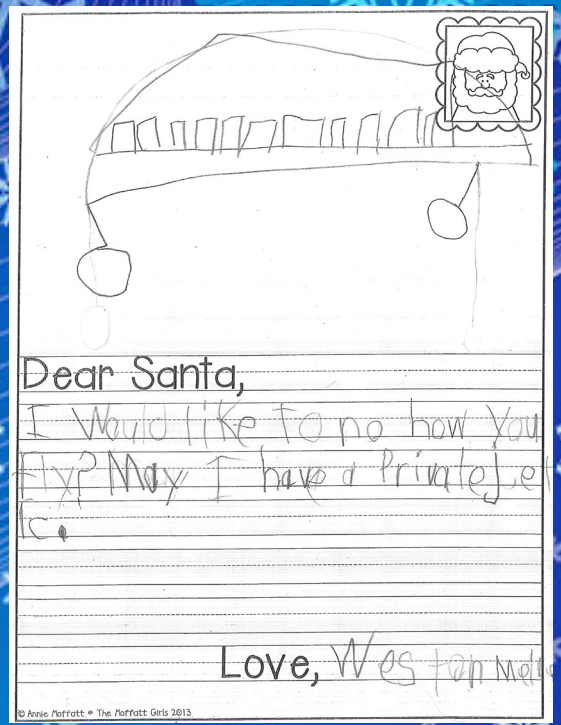 Dear Santa,
I Would like to no how you
fly? May I have a Private Jet
Love, Weston
© Annie Moffatt • The Moffatt Girls 2013